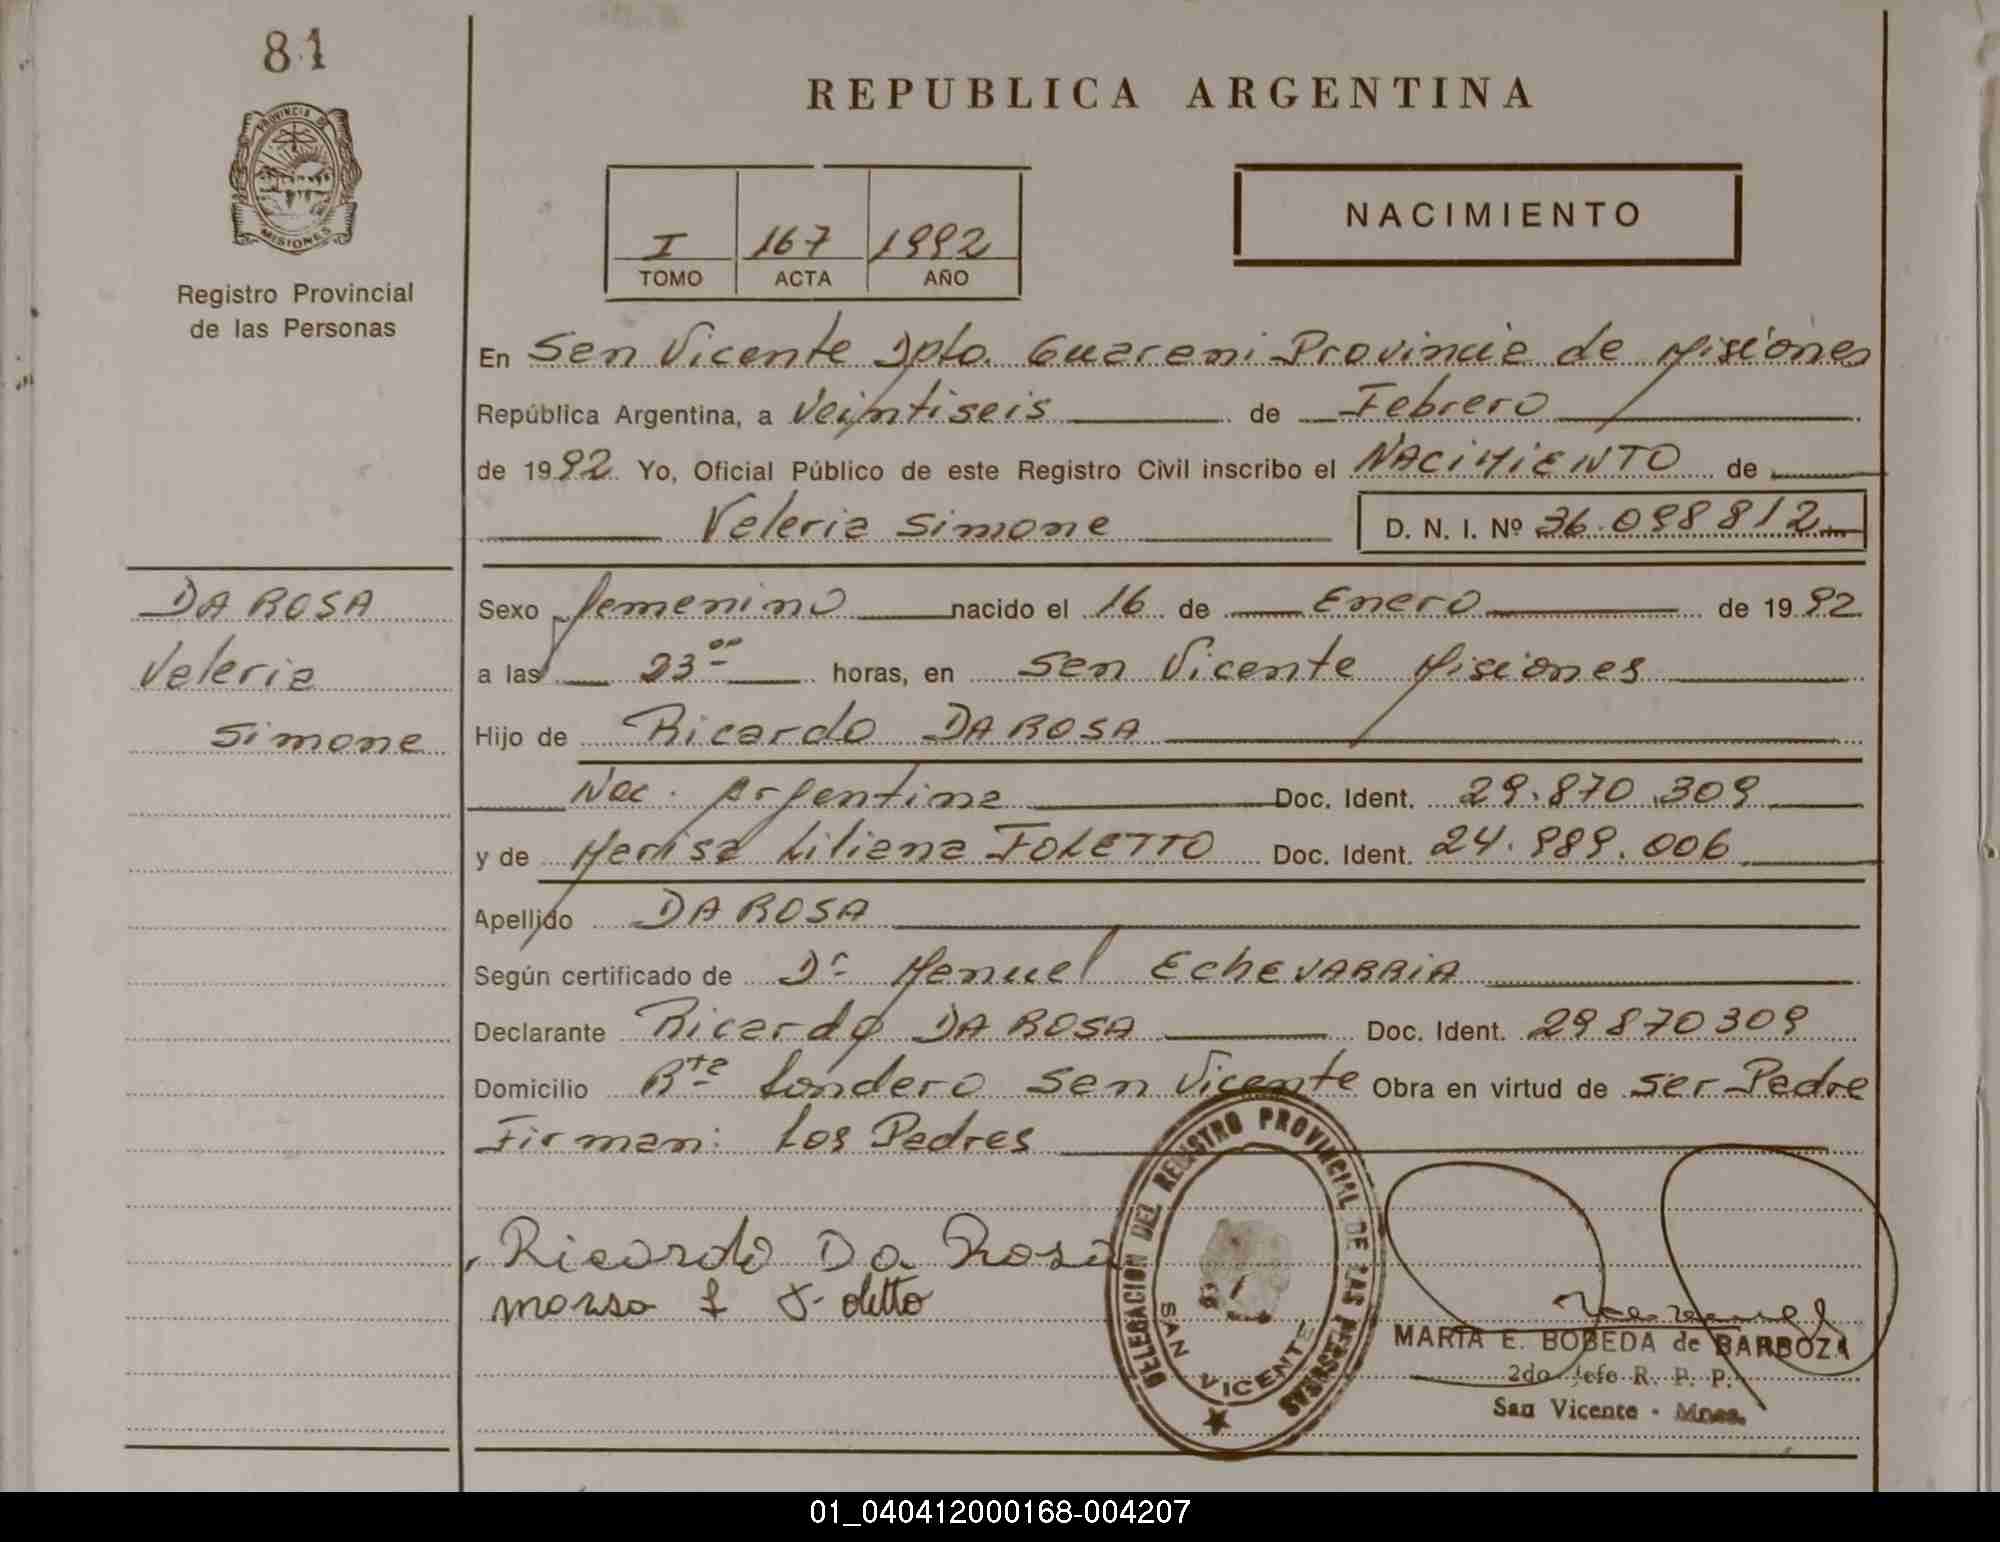 81
PROVINCIA DE
MISIONES
Registro Provincial
de las Personas
REPUBLICA ARGENTINA
I 167 1992
TOMO ACTA AÑO
NACIMIENTO
En San Vicente Dpto. Guarani Provincia de Misiones
República Argentina, a Veintiseis de Febrero
de 1992. Yo, Oficial Público de este Registro Civil inscribo el NACIMIENTO de
Valeria Simone D. N. I. Nº 36.098812
DA ROSA
Valeria
Simone
Sexo femenino nacido el 16 de Enero de 1992
a las 23 ⁰⁰ horas, en San Vicente Misiones
Hijo de Ricardo DA ROSA
Nac. Argentina Doc. Ident. 29.870.309
y de Marisa Liliana FOLETTO Doc. Ident. 24.989.006
Apellido DA ROSA
Según certificado de Dr Manuel EchEVARRIA
Declarante Ricardo DA ROSA Doc. Ident. 29870309
Domicilio Bte Londero San Vicente Obra en virtud de ser Padre
Firman: Los Padres
Ricardo Da Rosa
DELEGACION DEL REGISTRO PROVINCIAL DE LAS PERSONAS
SAN VICENTE
MARIA E. BOBEDA de BARBOZA
2do Jefe R. P. P.
San Vicente - Mnes.
01_040412000168-004207